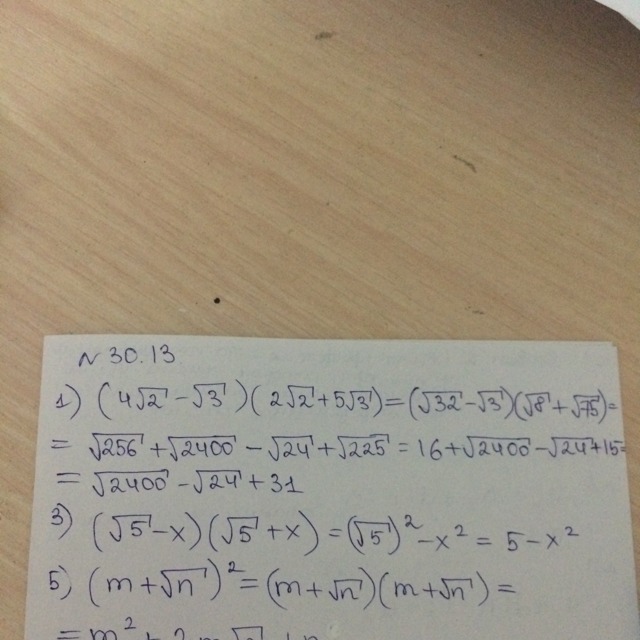 N 30.13
1) (4√2 - √3)(2√2 + 5√3) = (√32 - √3)(√8 + √75) =
= √256 + √2400 - √24 + √225 = 16 + √2400 - √24 + 15 =
= √2400 - √24 + 31
3) (√5 - x)(√5 + x) = (√5)² - x² = 5 - x²
5) (m + √n)² = (m + √n)(m + √n) =
= m² + 2m√n + n